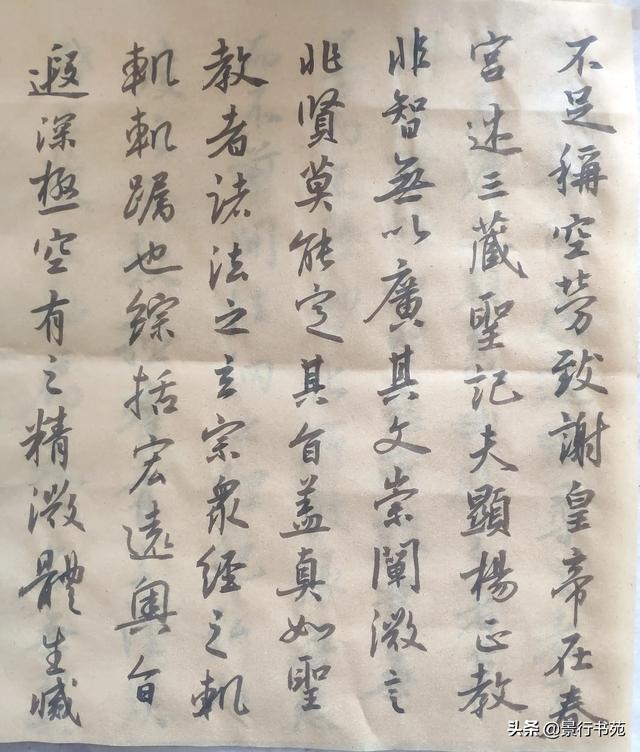 不足稱空勞致謝皇帝在春
宮述三藏聖記夫顯楊正教
非智無以廣其文崇闡微言
非賢莫能定其旨盖真如聖
教者諸法之玄宗衆經之軌
軌軌躅也綜括宏遠奧旨
遐深極空有之精微體生滅
头条 @景行书苑